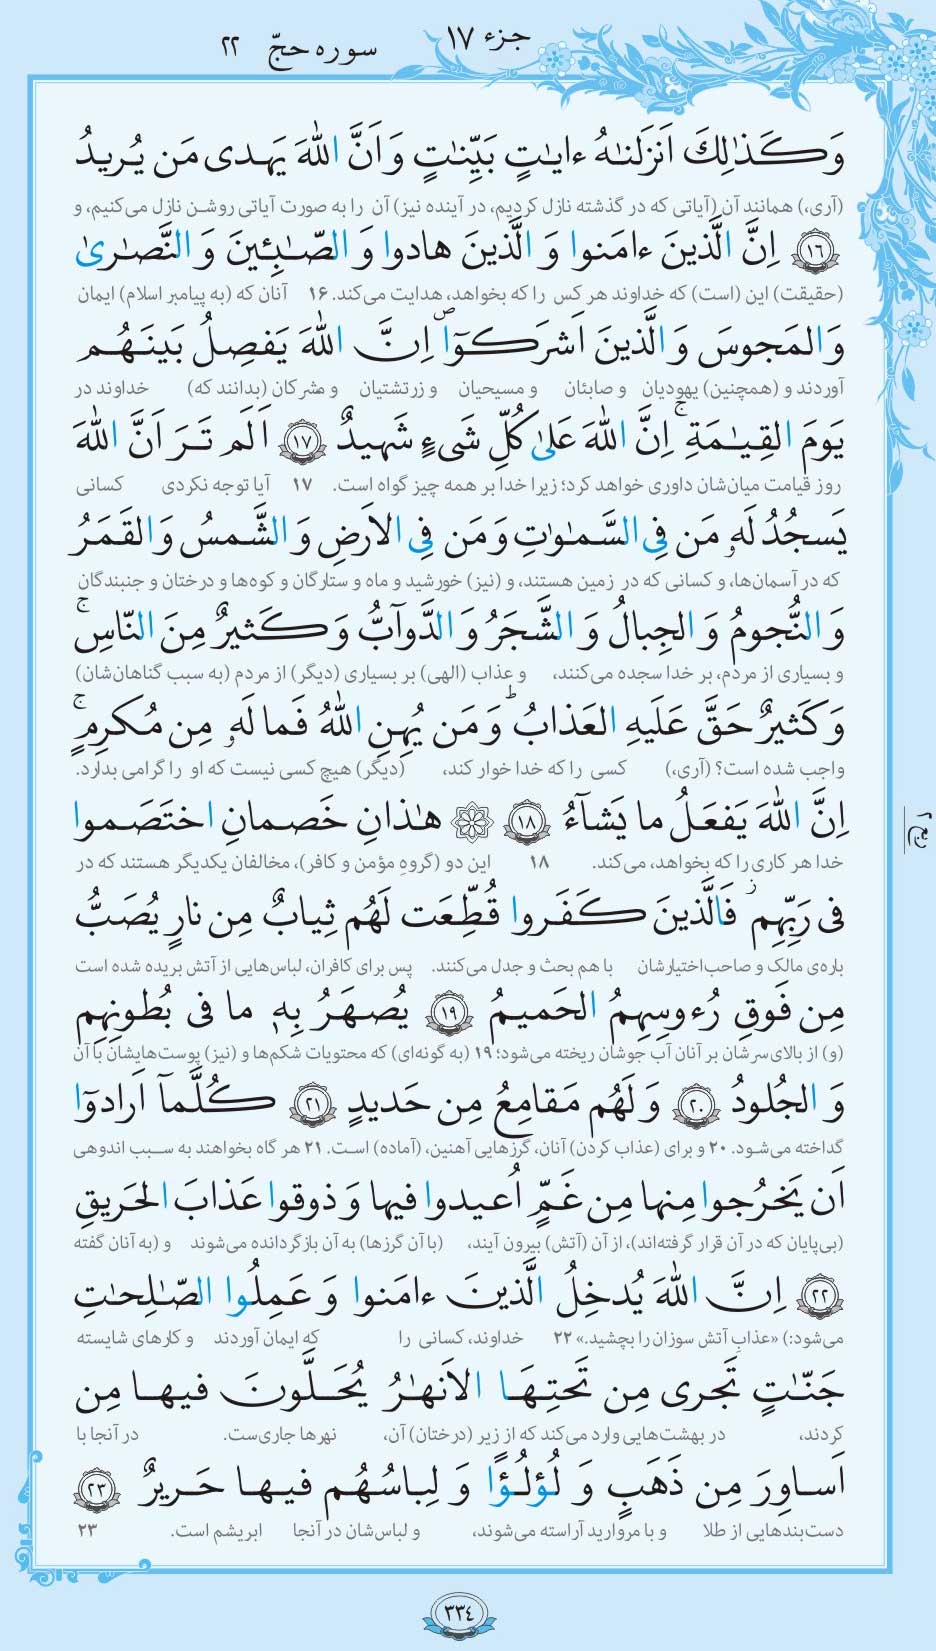 جزء ۱۷
سوره حجّ ۲۲
وَ كَذٰلِكَ اَنزَلنٰهُ ءايٰتٍ بَيِّنٰتٍ وَ اَنَّ اللّٰهَ يَهدى مَن يُريدُ
(آری،) همانند آن (آیاتی که در گذشته نازل کردیم، در آینده نیز) آن را به صورت آیاتی روشن نازل می‌کنیم، و
﴿۱۶﴾ اِنَّ الَّذينَ ءامَنوا وَ الَّذينَ هادوا وَ الصّٰبِـٔينَ وَ النَّصٰرىٰ
(حقیقت) این (است) که خداوند هر کس را که بخواهد، هدایت می‌کند. ۱۶ آنان که (به پیامبر اسلام) ایمان
وَ المَجوسَ وَ الَّذينَ اَشرَكوٓا ۖ اِنَّ اللّٰهَ يَفصِلُ بَينَهُم
آوردند و (همچنین) یهودیان و صابئان و مسیحیان و زرتشتیان و مشرکان (بدانند که) خداوند در
يَومَ القِيٰمَةِ ۚ اِنَّ اللّٰهَ عَلىٰ كُلِّ شَىءٍ شَهيدٌ ﴿۱۷﴾ اَلَم تَرَ اَنَّ اللّٰهَ
روز قیامت میان‌شان داوری خواهد کرد؛ زیرا خدا بر همه چیز گواه است. ۱۷ آیا توجه نکردی کسانی
يَسجُدُ لَهۥ مَن فِى السَّمٰوٰتِ وَ مَن فِى الاَرضِ وَ الشَّمسُ وَ القَمَرُ
که در آسمان‌ها، و کسانی که در زمین هستند، و (نیز) خورشید و ماه و ستارگان و کوه‌ها و درختان و جنبندگان
وَ النُّجومُ وَ الجِبالُ وَ الشَّجَرُ وَ الدَّوآبُّ وَ كَثيرٌ مِنَ النّاسِ ۚ
و بسیاری از مردم، بر خدا سجده می‌کنند، و عذاب (الهی) بر بسیاری (دیگر) از مردم (به سبب گناهان‌شان)
وَ كَثيرٌ حَقَّ عَلَيهِ العَذابُ ؕ وَ مَن يُهِنِ اللّٰهُ فَما لَهۥ مِن مُكرِمٍ ۚ
واجب شده است؟ (آری،) کسی را که خدا خوار کند، (دیگر) هیچ کسی نیست که او را گرامی بدارد.
اِنَّ اللّٰهَ يَفعَلُ ما يَشآءُ ﴿۱۸﴾ ۞ هٰذانِ خَصمانِ اختَصَموا
خدا هر کاری را که بخواهد، می‌کند. ۱۸ این دو (گروهِ مؤمن و کافر)، مخالفان یکدیگر هستند که در
فى رَبِّهِم ز فَالَّذينَ كَفَروا قُطِّعَت لَهُم ثِيابٌ مِن نارٍ يُصَبُّ
باره‌ی مالک و صاحب‌اختیارشان با هم بحث و جدل می‌کنند. پس برای کافران، لباس‌هایی از آتش بریده شده است
مِن فَوقِ رُءوسِهِمُ الحَميمُ ﴿۱۹﴾ يُصهَرُ بِهٖ ما فى بُطونِهِم
(و) از بالای سرشان بر آنان آب جوشان ریخته می‌شود؛ ۱۹ (به گونه‌ای) که محتویات شکم‌ها و (نیز) پوست‌هایشان با آن
وَ الجُلودُ ﴿۲۰﴾ وَ لَهُم مَقامِعُ مِن حَديدٍ ﴿۲۱﴾ كُلَّمآ اَرادوٓا
گداخته می‌شود. ۲۰ و برای (عذاب کردن) آنان، گرزهایی آهنین، (آماده) است. ۲۱ هر گاه بخواهند به سبب اندوهی
اَن يَخرُجوا مِنها مِن غَمٍّ اُعيدوا فيها وَ ذوقوا عَذابَ الحَريقِ
(بی‌پایان که در آن قرار گرفته‌اند)، از آن (آتش) بیرون آیند، (با آن گرزها) به آن بازگردانده می‌شوند و (به آنان گفته
﴿۲۲﴾ اِنَّ اللّٰهَ يُدخِلُ الَّذينَ ءامَنوا وَ عَمِلُوا الصّٰلِحٰتِ
می‌شود:) «عذابِ آتش سوزان را بچشید.» ۲۲ خداوند، کسانی را که ایمان آوردند و کارهای شایسته
جَنّٰتٍ تَجرى مِن تَحتِهَا الاَنهٰرُ يُحَلَّونَ فيها مِن
کردند، در بهشت‌هایی وارد می‌کند که از زیر (درختان) آن، نهرها جاری‌ست. در آنجا با
اَساوِرَ مِن ذَهَبٍ وَ لُؤلُؤًا وَ لِباسُهُم فيها حَريرٌ ﴿۲۳﴾
دست‌بندهایی از طلا و با مروارید آراسته می‌شوند، و لباس‌شان در آنجا ابریشم است. ۲۳
۳۳۴